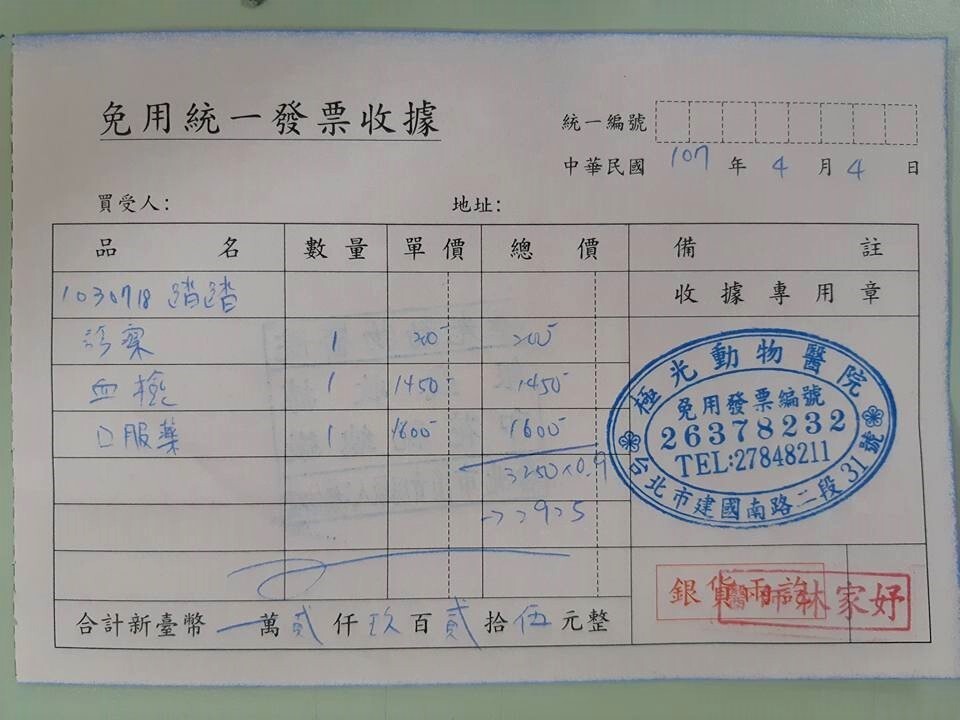 免用統一發票收據
統一編號
中華民國 107 年 4 月 4 日
買受人: 地址:
品名 數量 單價 總價 備註
1030718 踏踏
收據專用章
診察 1 200 200
血檢 1 1450 1450
口服藥 1 1600 1600
3250×0.9
→2925
極光動物醫院
免用發票編號
26378232
TEL:27848211
台北市建國南路二段31號
合計新臺幣 萬貳仟玖百貳拾伍元整
銀貨兩訖
林家妤